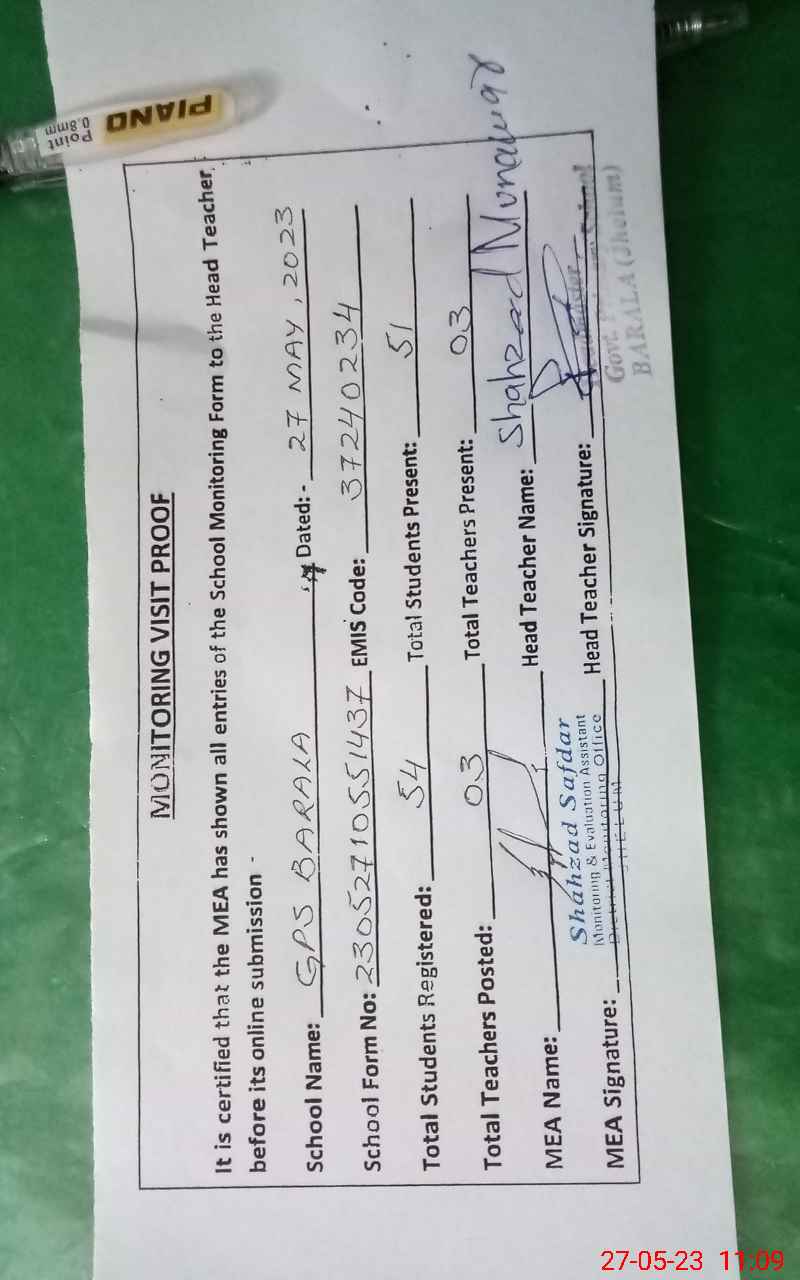 MONITORING VISIT PROOF
It is certified that the MEA has shown all entries of the School Monitoring Form to the Head Teacher
before its online submission -
School Name: GPS BARALA Dated: - 27 MAY, 2023
School Form No: 230527105514 37 EMIS Code: 37240234
Total Students Registered: 54 Total Students Present: 51
Total Teachers Posted: 03 Total Teachers Present: 03
MEA Name: Head Teacher Name: Shahzad Munawar
Shahzad Safdar
Monitoring & Evaluation Assistant
District Monitoring Office
JHELUM
MEA Signature: Head Teacher Signature:
Govt.
BARALA (Jhelum)
PIANO
Point
0.8mm
27-05-23 11:09